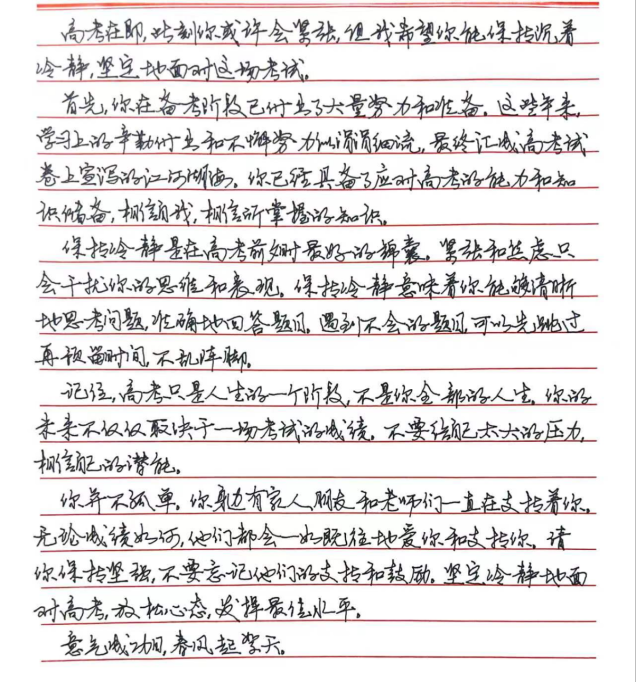 高考在即,此刻你或许会紧张,但我希望你能保持沉着
冷静,坚定地面对这场考试。
首先,你在备考阶段已付出了大量努力和准备。这些年来,
学习上的辛勤付出和不懈努力似涓涓细流,最终汇成高考试
卷上宣泻的江河湖海。你已经具备了应对高考的能力和知
识储备,相信自我,相信所掌握的知识。
保持冷静是在高考前夕时最好的锦囊。紧张和焦虑只
会干扰你的思维和表现。保持冷静意味着你能够清晰
地思考问题,准确地回答题目。遇到不会的题目,可以先跳过
再预留时间,不乱阵脚。
记住,高考只是人生的一个阶段,不是你全部的人生。你的
未来不仅仅取决于一场考试的成绩。不要给自己太大的压力,
相信自己的潜能。
你并不孤单。你身边有家人朋友和老师们一直在支持着你。
无论成绩如何,他们都会一如既往地爱你和支持你。请
你保持坚强,不要忘记他们的支持和鼓励。坚定冷静地面
对高考,放松心态,发挥最佳水平。
意气成功日,春风起擎天。